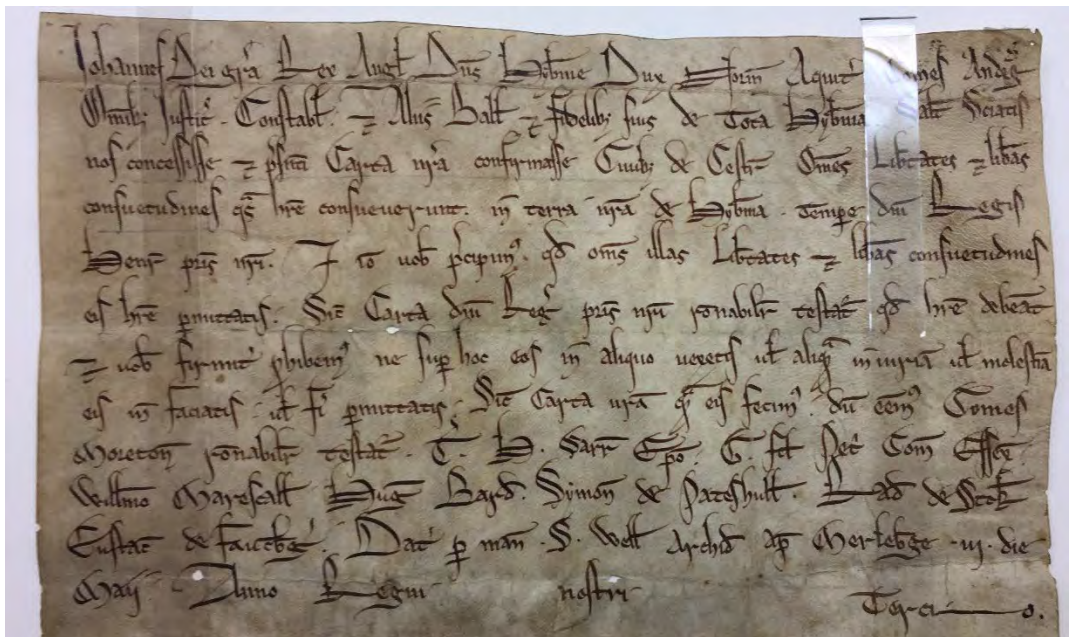 Johannes Dei gr̄a Rex Angl̄ Dn̄s Hyb̄nie Dux Norm̄ Aquit̄ Comes Andeḡ
Omnib; Justic̄ . Constabl̄ . ⁊ Aliis Ball̄ ⁊ fidelib; suis de Tota Hyb̄nia Salt̄ Sciatis
nos concessisse ⁊ p̄senti Carta nr̄a confirmasse Civib; de Cestr̄ Om̄es Lib̄tates ⁊ lib̄as
consuetudines q̄s hr̄e consueverunt . in terra nr̄a de Hyb̄nia . Tempore dn̄i Regis
Henr̄ pris̄ nr̄i . Et iō vob̄ p̄cipim⁹ . qd̄ om̄s illas Lib̄tates ⁊ lib̄as consuetudines
eis hr̄e p̄mittatis . Sic̄ Carta dn̄i Reḡ pris̄ nr̄i r̄onabilr̄ testat̄ qd̄ hr̄e debeāt
⁊ vob̄ firmit̄ p̄hibem⁹ ne sup̄ hoc eos in aliquo vexetis vl̄ aliq̄ iniuriā vl̄ molestiā
eis īn faciatis . vl̄ fi̅ p̄mittatis . Sic̄ Carta nr̄a q̄ eis fecim⁹ . dū eēm⁹ Comes
Moreton̄ r̄onabilr̄ testat̄ . T̄ . H . Sarr̄ Ep̄o . G . fil̄ Pet̄ Com̄ Essex̄ .
Will̄mo Marescall̄ Huḡ Bard̄ . Symon̄ de Pateshull̄ . Rad̄ de Stok̄
Eustac̄ de Faucb̄ḡ . Dat̄ p̄ man̄ . S . Well̄ Archid̄ ap̄ Merleb̄ge . iii . die
Maij . Anno Regni nostri Tercio .